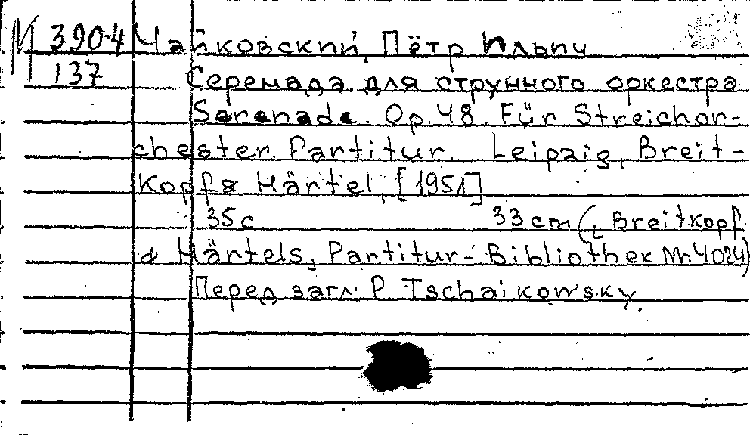 М 3904 Чайковский, Пётр Ильич
137 Серенада для струнного оркестра
Serenade. Op. 48. Für Streichor-
chester. Partitur. Leipzig, Breit-
kopf & Härtel, [1951]
35 c 33 cm (Breitkopf
& Härtels, Partitur-Bibliothek Nr. 4024)
Перед загл: P. Tschaikowsky.